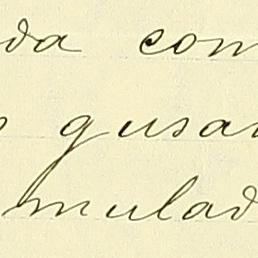 da com
s gusan
mulad